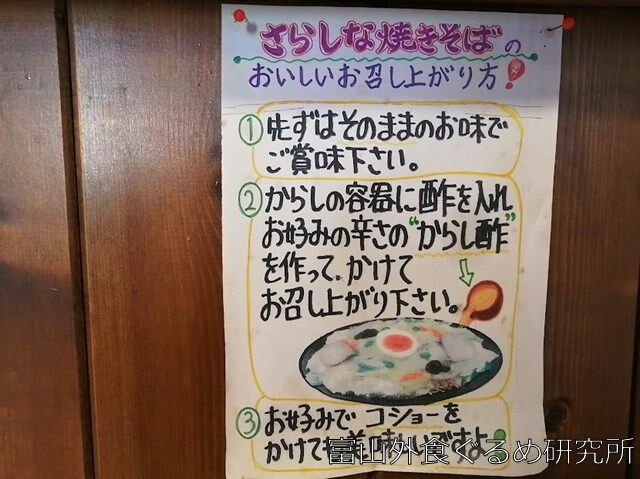 さらしな焼きそばの
おいしいお召し上がり方!
① 先ずはそのままのお味で
ご賞味下さい。
② からしの容器に酢を入れ
お好みの辛さの"からし酢"
を作って、かけて
お召し上がり下さい。
③ お好みでコショーを
かけても美味しいですよ
富山外食ぐるめ研究所